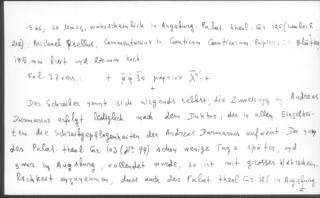 1566, 30 März, wahrscheinlich in Augsburg. Palat. theol. Gr. 125 (Lambeck
212): Michael Psellus, Commentarius in Canticum Canticorum. Papier, Blätter
185 mm breit und 270 mm hoch
Fol. 37 vers.: +
Der Schreiber nennt sich nirgends selbst, die Zuweisung an Andreas
Darmarius erfolgt lediglich nach dem Duktus, der in allen Einzelhei-
ten die Schreibgepflogenheiten des Andreas Darmarius aufweist. Da nun
der Palat. theol. Gr. 103 (Nr 99) schon wenige Tage später, und
zwar in Augsburg, vollendet wurde, so ist mit grosser Wahrschein-
lichkeit anzunehmen, dass auch der Palat. theol. Gr. 125 in Augsburg